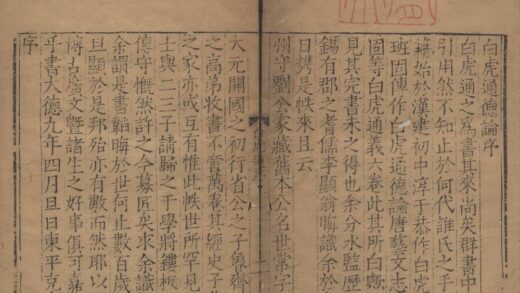 白虎通德論序
白虎通之為書其來尚矣群書中
引用然不知止於何代誰氏之手
始於漢建初中淳于恭作白虎
班固傳作白虎通德論唐藝文志
固等白虎通義六卷此其所
見其完書未之得也余分水監歷
錫有郡之耆儒李顯翁晦識余於
日攜是帙來且云
州守劉公家藏舊本公名世常字
大元開國之初行省公之子魯齋
之高第收書不啻萬卷其經史子
之家亦或互有惟此帙世所罕見
士與二三子請歸之于學將鏤板
傳守慨然許之令募匠矣求余識
余謂是書韜晦於世何止數百歲
旦顯於是邦殆亦有數而然耶以
博古文暨諸生之好事俱可
乎書大德九年四月旦日東平克
序